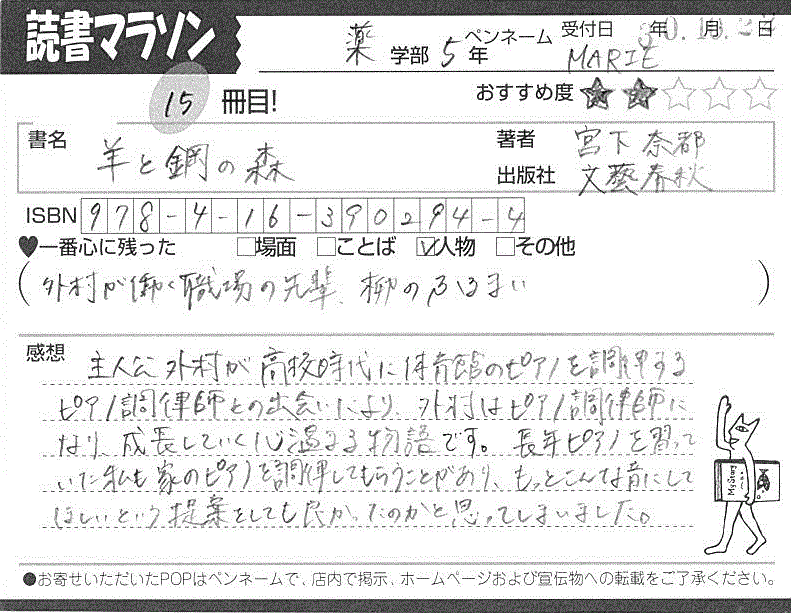 読書マラソン
薬 学部 5 年
ペンネーム MARIE
受付日 30.10.24 年 月 日
15 冊目!
おすすめ度 ★★☆☆☆
書名 羊と鋼の森
著者 宮下奈都
出版社 文藝春秋
ISBN 978-4-16-390294-4
♥一番心に残った □場面 □ことば ☑人物 □その他
(外村が働く職場の先輩、柳のふるまい)
感想
主人公外村が高校時代に体育館のピアノを調律する
ピアノ調律師との出会いにより、外村はピアノ調律師に
なり、成長していく心温まる物語です。長年ピアノを習って
いた私も家のピアノを調律してもらうことがあり、もっとこんな音にして
ほしいという提案をしても良かったのかと思ってしまいました。
●お寄せいただいたPOPはペンネームで、店内で掲示、ホームページおよび宣伝物への転載をご了承ください。